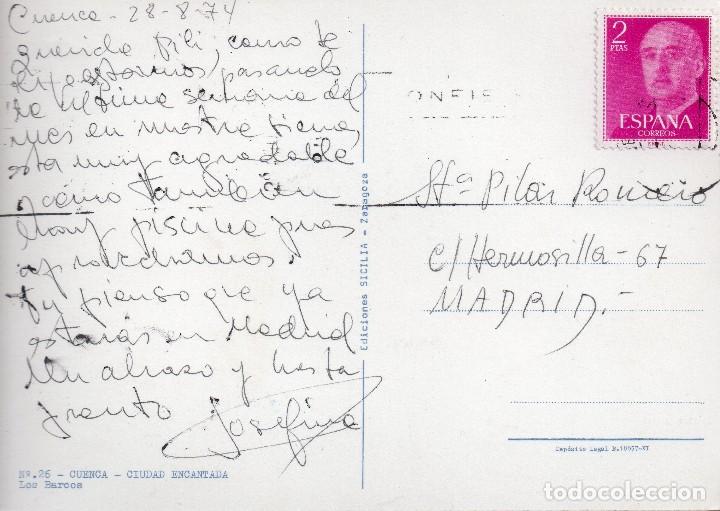 Cuenca - 28-8-74
Querida Pili, como te
dije estamos, pasando
la última semana del
mes en nuestra tierra,
esta muy agradable
y como también
hay piscina pues
aprovechamos.
Tu pienso que ya
estarás en Madrid
Un abrazo y hasta
pronto Josefina
Nº.26 - CUENCA - CIUDAD ENCANTADA
Los Barcos
Ediciones SICILIA - Zaragoza
2
PTAS
ESPAÑA
CORREOS
Stª Pilar Romero
C/ Hermosilla - 67
MADRID.-
Depósito Legal B.
todocoleccion.net